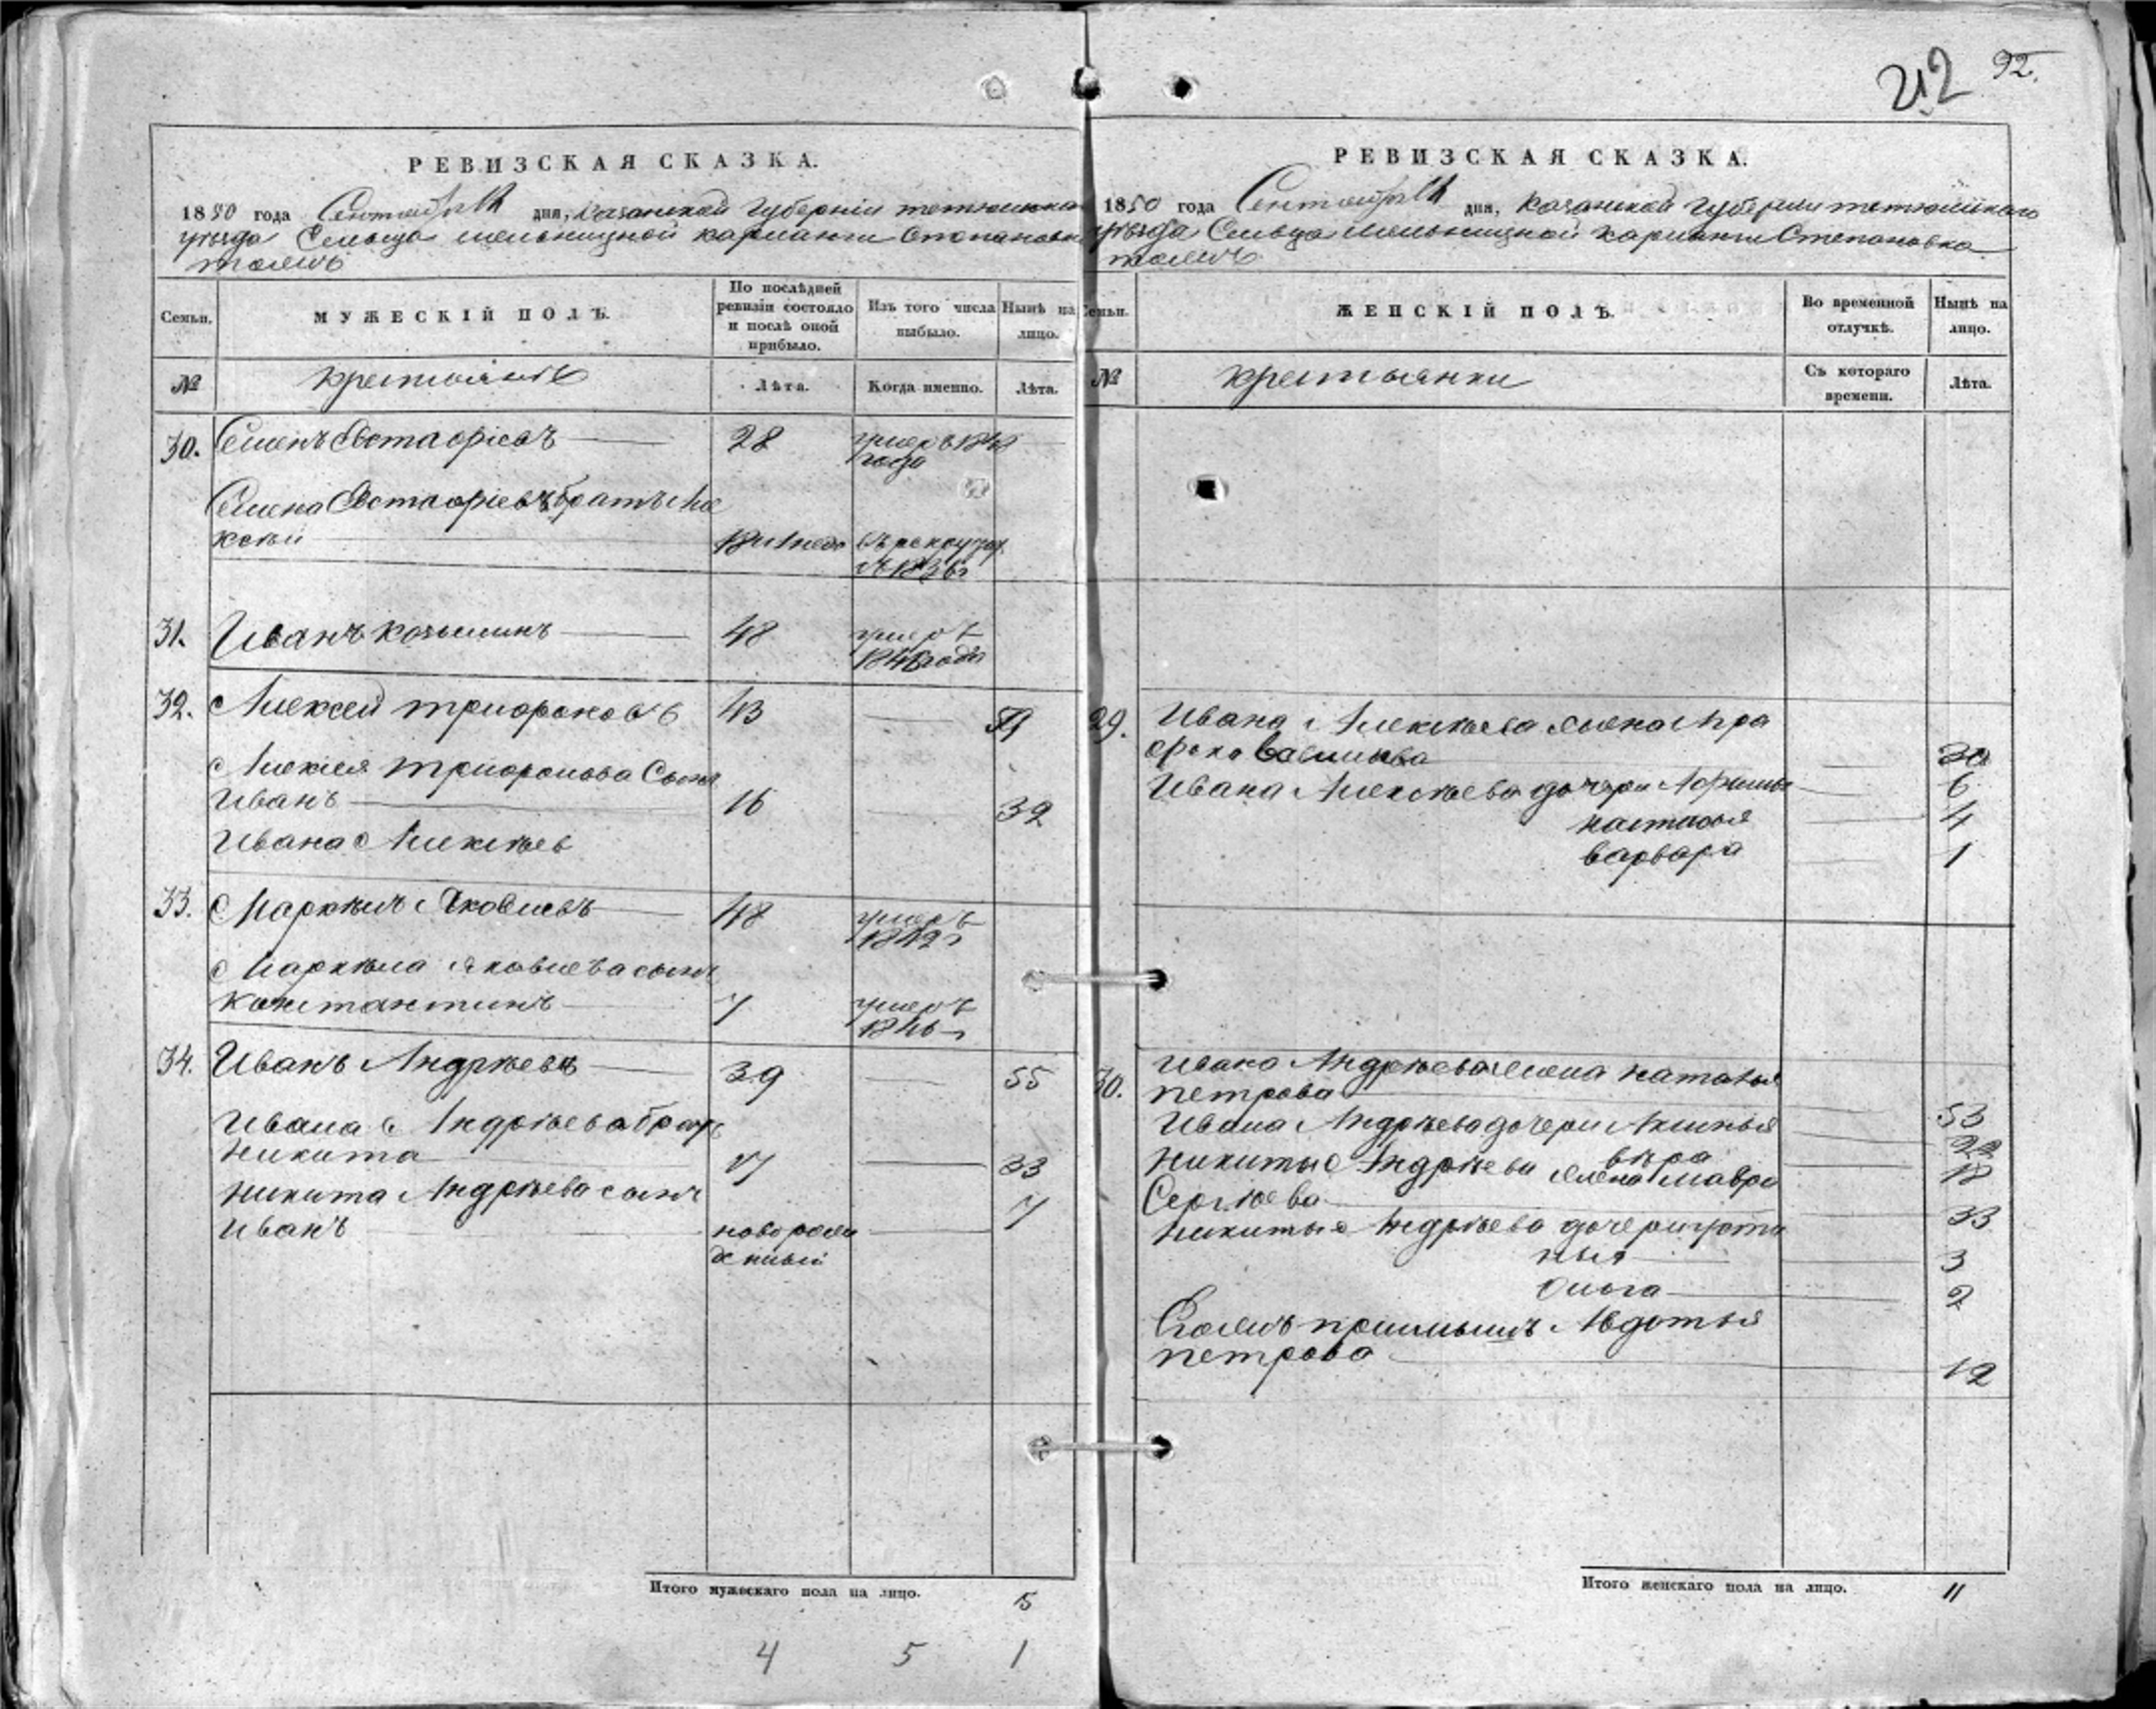 212 92.
РЕВИЗСКАЯ СКАЗКА.
1850 года Сентября дня, Казанской Губернiи тетюшска
уѣзда Сельца мельничной карланги Степановки
тожъ
Семьи. МУЖЕСКIЙ ПОЛЪ. По послѣдней ревизiи состояло и послѣ оной прибыло. Изъ того числа выбыло. Нынѣ на лицо.
№ крестьяне Лѣта. Когда именно. Лѣта.
30. Семенъ Евстафiевъ 28 умеръ 1848
года
Семена Евстафiевъ братъ Але
ксѣй въ рекруты
31. Иванъ Козьминъ 48 умеръ
1846 года
32. Алексей трифоновъ 43 59
Алексея трифонова Сынъ
Иванъ 16 32
Ивана Алексѣев
33. Маркѣлъ Яковлевъ 48 умеръ
1842 г
Маркѣла Яковлева сынъ
константинъ 7 умеръ
1846 г
34. Иванъ Андрѣевъ 39 55
Ивана Андрѣева братъ
Никита 17 33
Никита Андрѣева сынъ
Иванъ новорож 7
денный
Итого мужескаго пола на лицо. 5
4 5 1
РЕВИЗСКАЯ СКАЗКА.
1850 года Сентября дня, Казанской Губернiи тетюшскаго
уѣзда Сельца Мельничной Карланги Степановка
тожъ
Семьи. ЖЕНСКIЙ ПОЛЪ. Во временной отлучкѣ. Нынѣ на лицо.
№ крестьянки Съ котораго времени. Лѣта.
29. Ивана Алексѣева жена Апра
30
Ивана Алексѣева дочери 6
настасья 4
варвара 1
30. Ивана Андрѣева жена наталья
петрова 53
Ивана Андрѣева дочери Аксинья 22
вѣра 18
Никиты Андрѣева жена Мавра
Сергѣева 33
Никиты Андрѣева дочери усти
нья 3
Ольга 2
Авдотья
петрова 12
Итого женскаго пола на лицо. 11